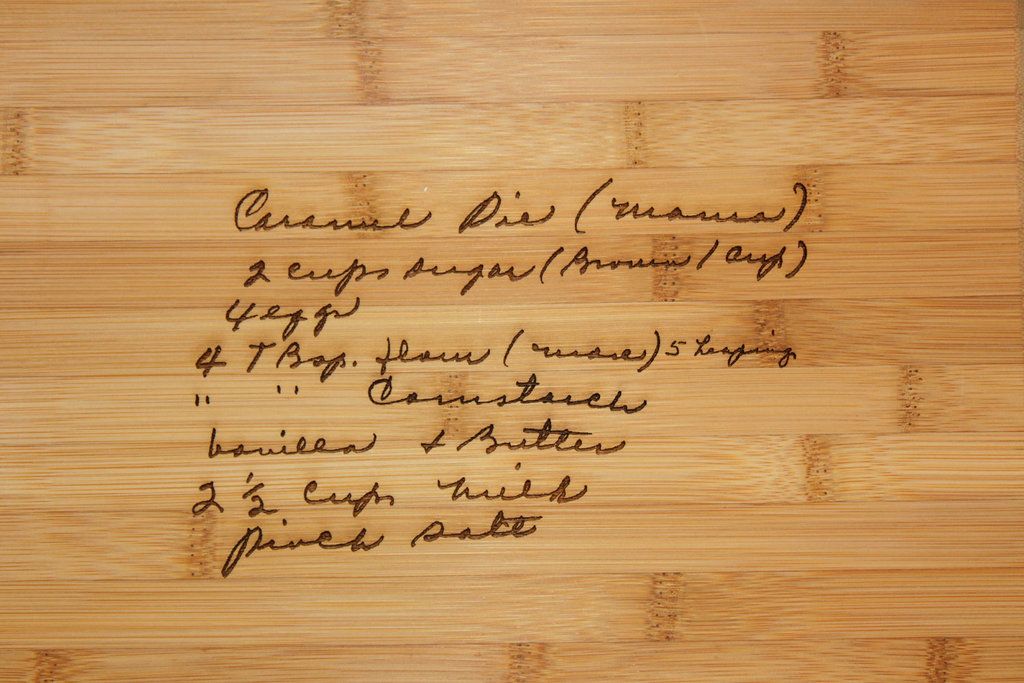 Caramel Pie (Mama)
2 cups sugar (Brown 1 cup)
4 eggs
4 TBsp. flour (more) 5 heaping
" " Cornstarch
Vanilla & Butter
2 1/2 cups milk
pinch salt